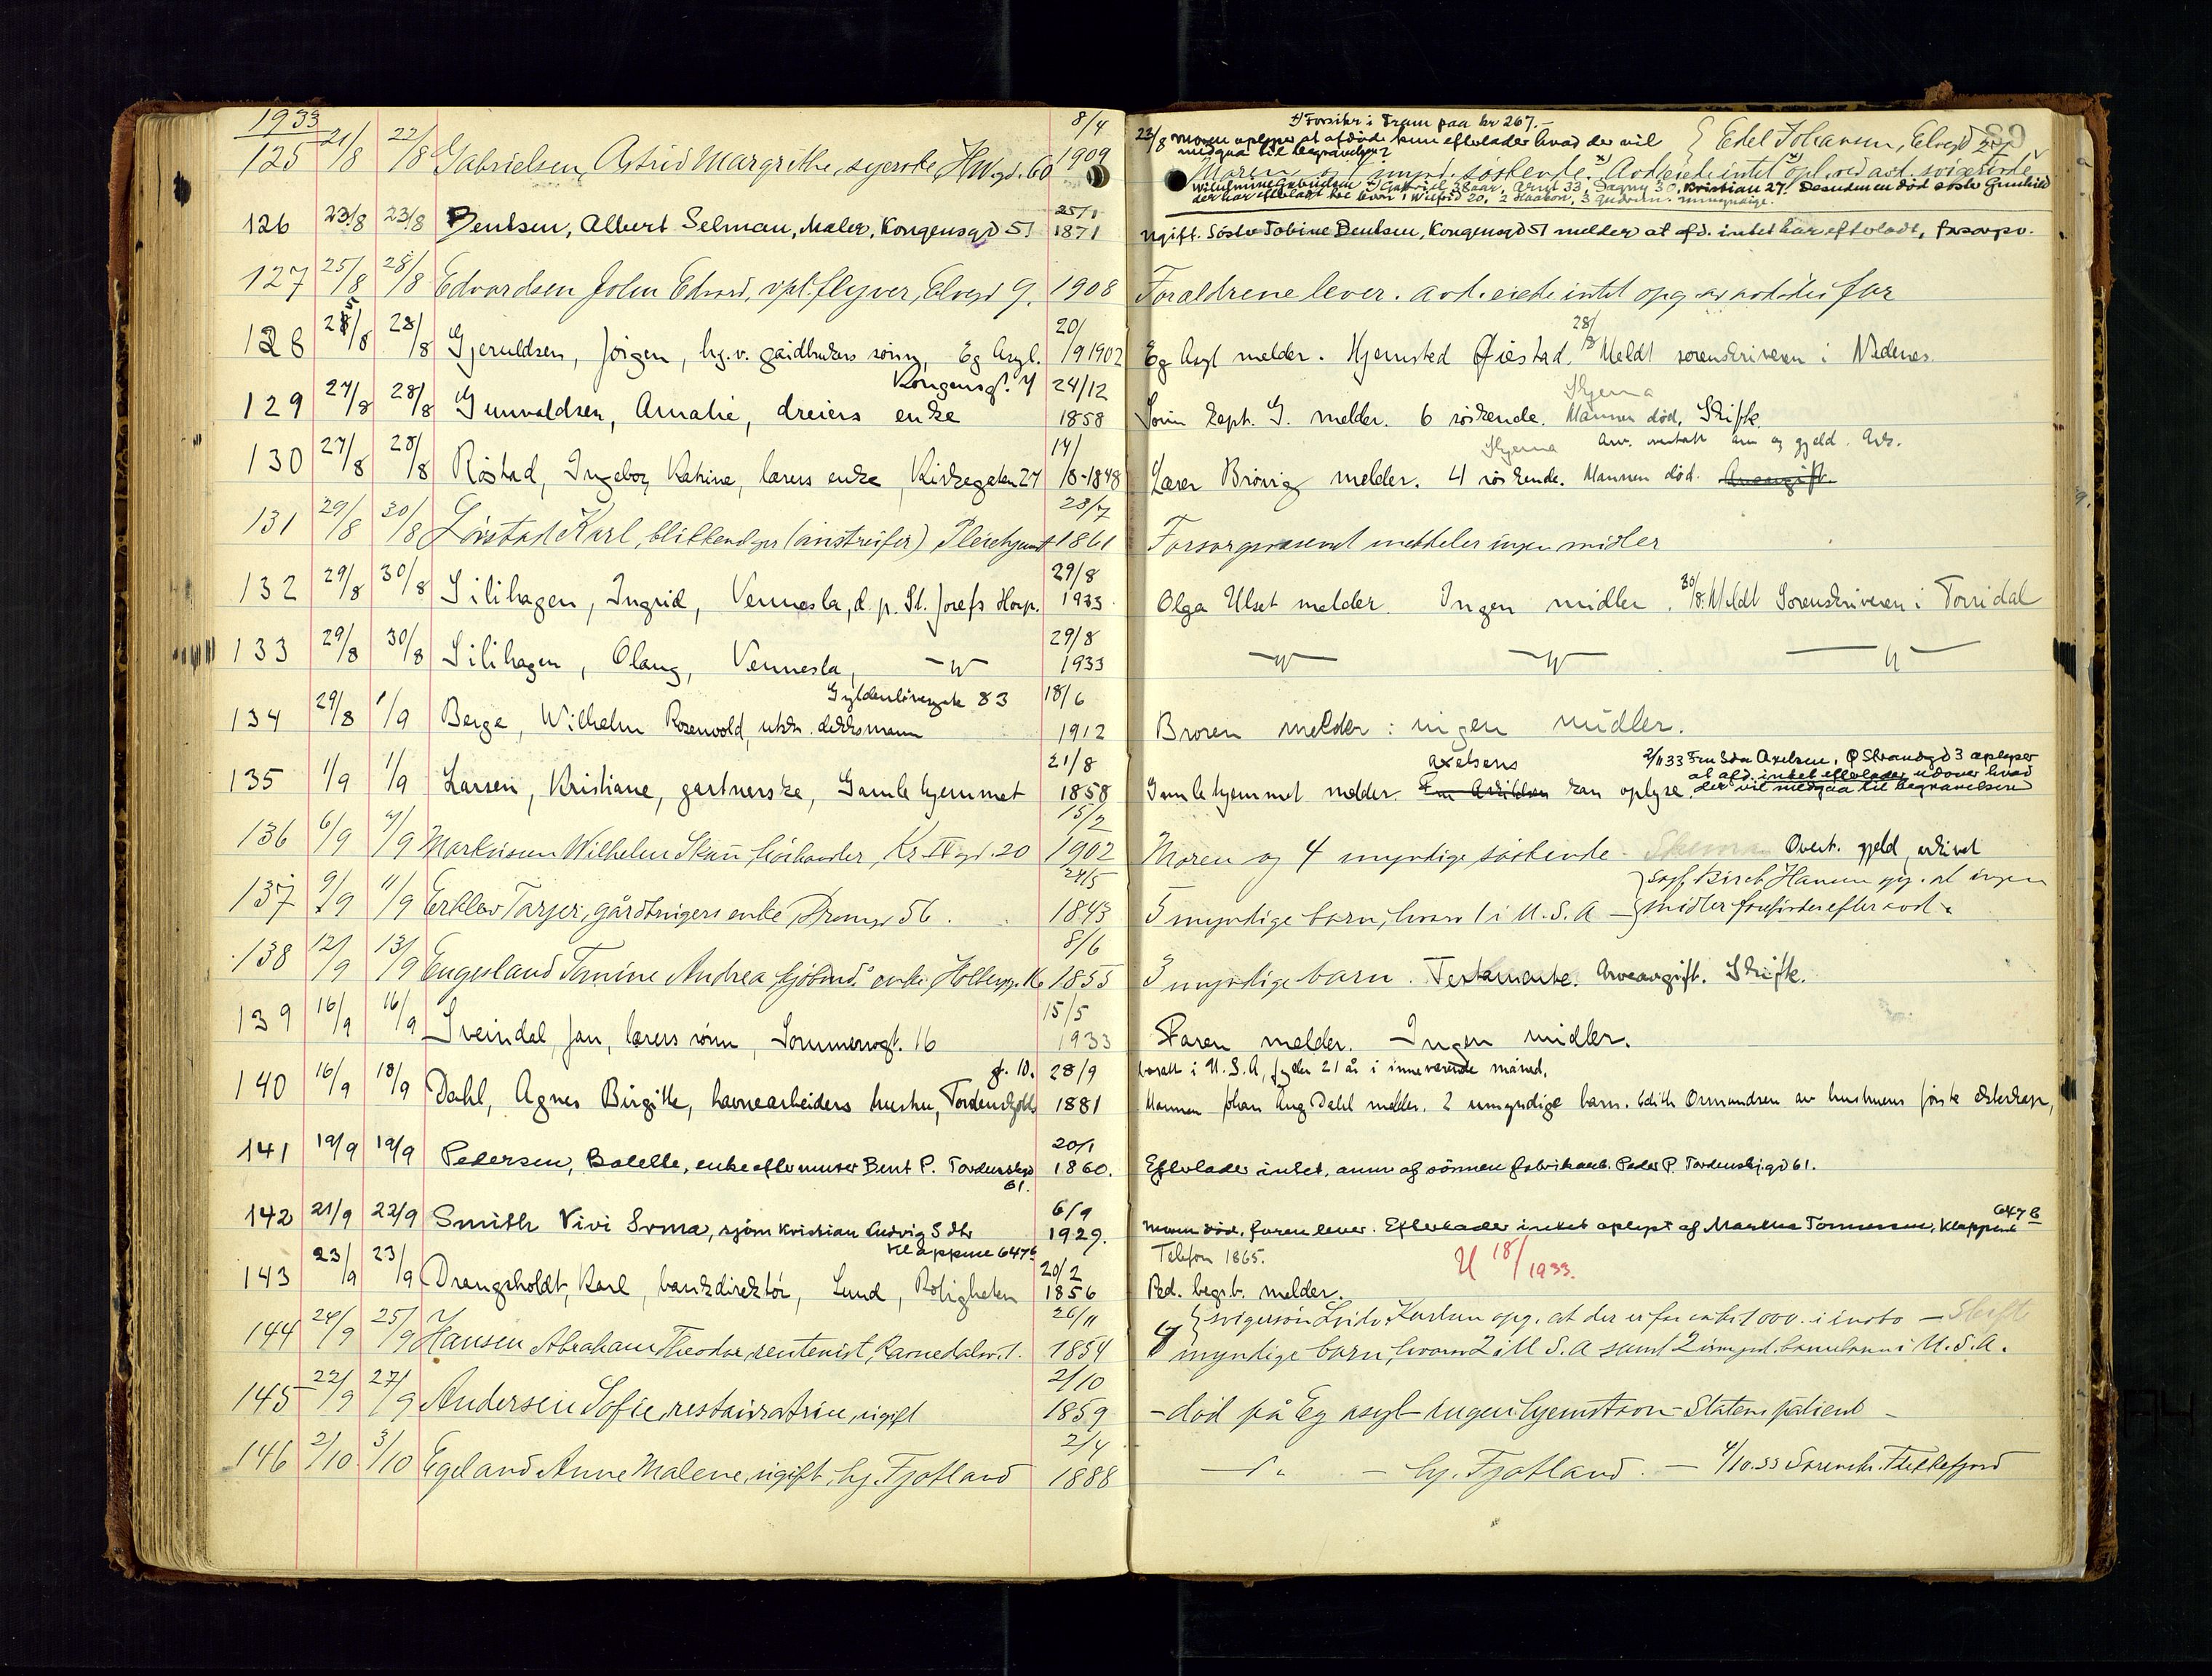 1933
125 21/8 22/8 Gabrielsen, Astrid Margrethe, syerske, H.W.gd. 60 8/4 1909
x) Forsikr i Fram paa kr 267.-
23/8 Moren oplyser at afdöde kun efterlader hvad der vil medgaa til begravelsen
Edel Johansen, Elvegd 27
89
Moren og mynd. söskende. Avd. eiede intet
Gabriel 38 aar, Arnt 33, Dagny 30, Kristian 27. Desuden en död söster Gunhild
der har efterladt 1 Wilfred 20, 2 Haakon, 3 Gudrun umyndige.
126 23/8 23/8 Bentsen, Albert Selman, Maler, Kongensgd 51 25/1 1871
ugift. Söster Tobine Bentsen, Kongensgd 51 melder at afd. intet har efterladt, forsorgsv.
127 25/8 28/8 Edvardsen John Edvard, vpl. flyver, Elvegd 9. 1908
Foraldrene lever. avd. eiede intet opg av avdödes far
128 25/8 28/8 Gjeruldsen, Jörgen, hj.v. gaidbrukers sönn, Eg Asyl. 20/9 1902
Eg Asyl melder. Hjemsted Øiestad. 28/8 Meldt sorenskriveren i Nedenes
Kongensgt. 4
129 27/8 28/8 Gunvaldsen, Amalie, dreiers enke 24/12 1858
Skjema
Sönn kapt. G. melder. 6 söskende. Mannen död, Skifte.
130 27/8 28/8 Röstad, Ingeborg Katrine, lærers enke, Kirkegaten 27 14/8-1848
Skjema Arv. overtatt arv og gjeld. Avs.
Lærer Bröing melder. 4 söskende. Mannen död. Arveavgift.
131 29/8 30/8 Lövstad Karl, blikkenslger (omstreifer) 28/7 1861
Forsorgsvæsenet meddeler ingen midler
132 29/8 30/8 Lilihagen, Ingrid, Vennesla, d. p. St. Josefs Hosp. 29/8 1933
Olga Ulset melder. Ingen midler. 30/8 Meldt Sorenskriveren i Torridal
133 29/8 30/8 Lilihagen, Olaug, Vennesla, —"— 29/8 1933
—"— —"— —"—
Gyldenlövesgate 83
134 29/8 1/9 Berge, Wilhelm Rosenvold, ukk. dekksmann 18/6 1912
Broren melder: ingen midler.
135 1/9 1/9 Larsen, Kristiane, gartnerske, Gamlehjemmet 21/8 1858
Axelsens
2/11 33 Fru Ida Axelsen, Ø Strandgd 3 oplyser
at afd. intet efterlader udover hvad
Gamlehjemmet melder. kan oplyse. der vil medgaa til begravelsen
136 6/9 7/9 Markussen Wilhelm Skau, Kr. IV gd. 20 15/2 1902
Moren og 4 myndige söskende. Skema Overt. gjeld, arkivet
137 9/9 11/9 Erklev Tarjer, gårdbrugers enke, Dronngd 56. 24/5 1843
Birch Hansen opg. at ingen
5 myndige barn, hvorav 1 i U.S.A — midler forefindes efter avd.
138 12/9 13/9 Eugesland Tomine Andrea kjöbmds enke, Holbergsgt. 16 8/6 1855
3 myndige barn. Testamente. Arveavgift. Skifte.
139 16/9 16/9 Sveindal, Jan, lærers sönn, Sommerrogt. 16 15/5 1933
Faren melder. Ingen midler.
gt. 10.
140 16/9 18/9 Dahl, Agnes Birgitte, havnearbeiders hustru, Tordenskjolds 28/9 1881
bosatt i U.S.A, fyller 21 år i inneværende måned.
Mannen Johan Aug Dahl melder. 2 umyndige barn. Edith Osmundsen av hustruens förste ekteskap,
141 19/9 19/9 Pedersen, Bolette, enke efter murer Bent P. Tordenskjgd 61. 20/1 1860.
Efterlader intet, anm. af sönnen fabrikarb. Peder P. Tordenskj.gd 61.
142 21/9 22/9 Smith Vivi Irma, sjöm Kristian Ludvig S dtr 6/9 1929.
Klappene 647 b
647 b
Moren död, faren lever. Efterlader intet oplyst af Martha Tönnessen, Klappene
143 23/9 23/9 Drangsholdt, Karl, bankdirektör, Lund, Roligheten 20/2 1856
Telefon 1865.
U 18/ 1933.
Ped. begr.b. melder.
144 24/9 25/9 Hansen Abraham Theodor, rentenist, Ravnedalsv. 1. 26/11 1854
svigersön Karlsen opg. at der er for ca kr 1000. i innbo — Skifte
9 myndige barn, hvorav 2 i U.S.A samt 2 umynd. barnebarn i U.S.A.
145 22/9 27/9 Andersen Sofie, restauratrice, ugift 2/10 1859
— död på Eg asyl — ingen hjemstavn — Statens patient —
146 2/10 3/10 Egeland Anne Malene, ugift, hj. Fjotland 2/4 1888
—"— — hj. Fjotland. — 4/10.33 Sorenskr. Flekkefjord